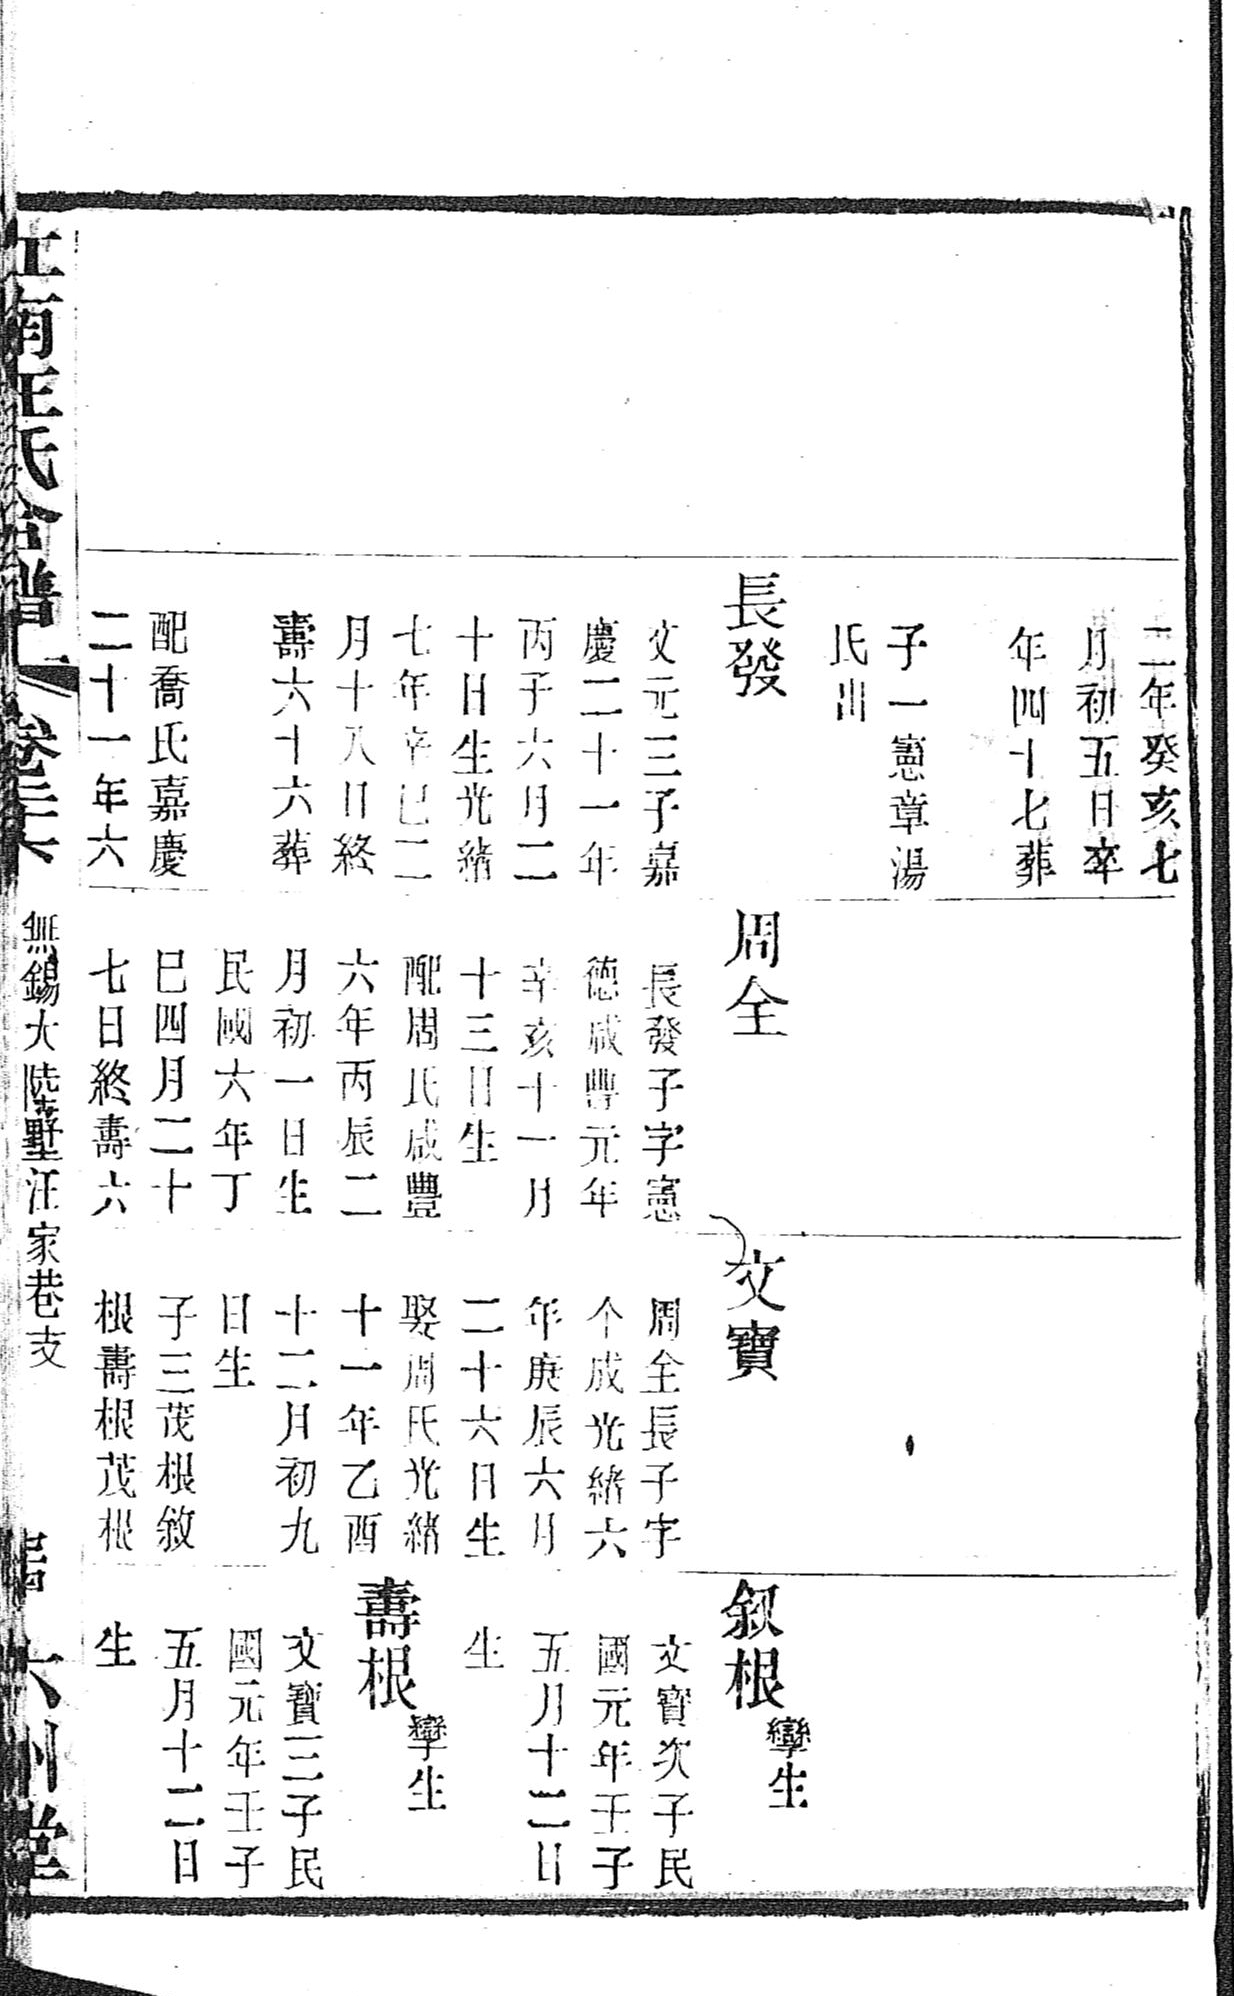 二年癸亥七
月初五日卒
年四十七葬
子一憲章湯
氏出
長發
文元三子嘉
慶二十一年
丙子六月二
十日生光緒
七年辛巳二
月十八日終
壽六十六葬
配喬氏嘉慶
二十一年六
周全
長發子字憲
德咸豐元年
辛亥十一月
十三日生
配周氏咸豐
六年丙辰二
月初一日生
民國六年丁
巳四月二十
七日終壽六
文寶
周全長子字
个成光緒六
年庚辰六月
二十六日生
娶周氏光緒
十一年乙酉
十二月初九
日生
子三茂根敘
根壽根茂根
叙根孿生
文寶次子民
國元年壬子
五月十二日
生
壽根孿生
文寶三子民
國元年壬子
五月十二日
生
江南汪氏合譜
卷二六
無錫大陸墅汪家巷支
六州堂